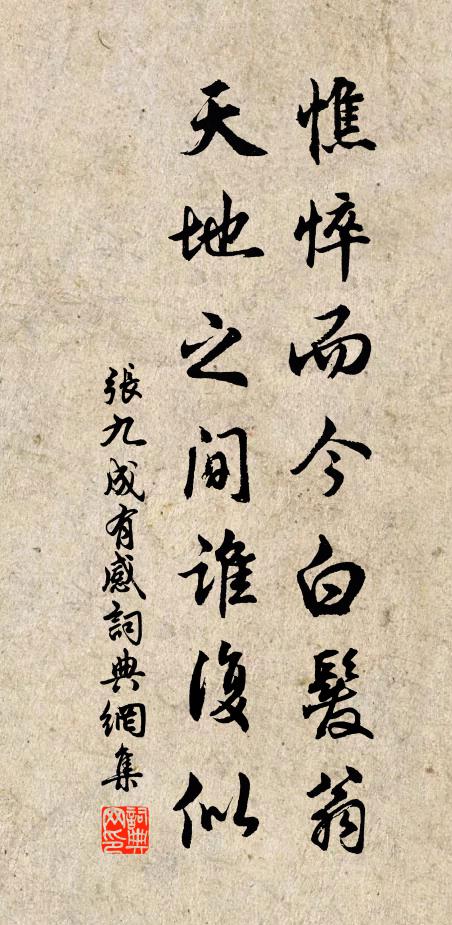 憔悴而今白髮翁
天地之间谁復似
張九成有感詞典網集
詞典網印